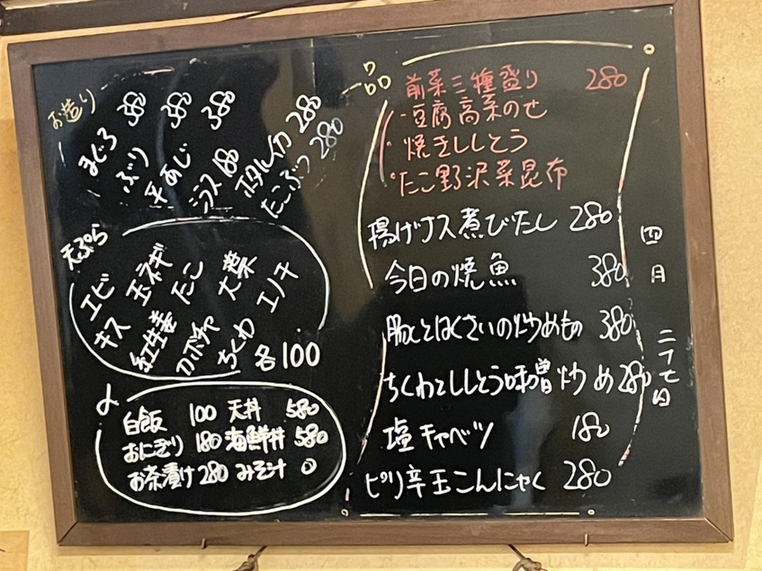 お造り
まぐろ 380
ぶり 380
平あじ 380
シラス 180
ホタルイカ 280
たこぶつ 280
天ぷら
エビ 玉ネギ たこ 大葉 エノキ
キス 紅生姜 カボチャ ちくわ 各100
〆
白飯 100 天丼 580
おにぎり 180 海鮮丼 580
お茶漬け 280 みそ汁 0
一品
前菜三種盛り 280
・豆腐高菜のせ
・焼きししとう
・たこ野沢菜昆布
揚げナス煮びたし 280
今日の焼魚 380
豚とはくさいの炒めもの 380
ちくわとししとう味噌炒め 280
塩キャベツ 180
ピリ辛玉こんにゃく 280
四月二十七日